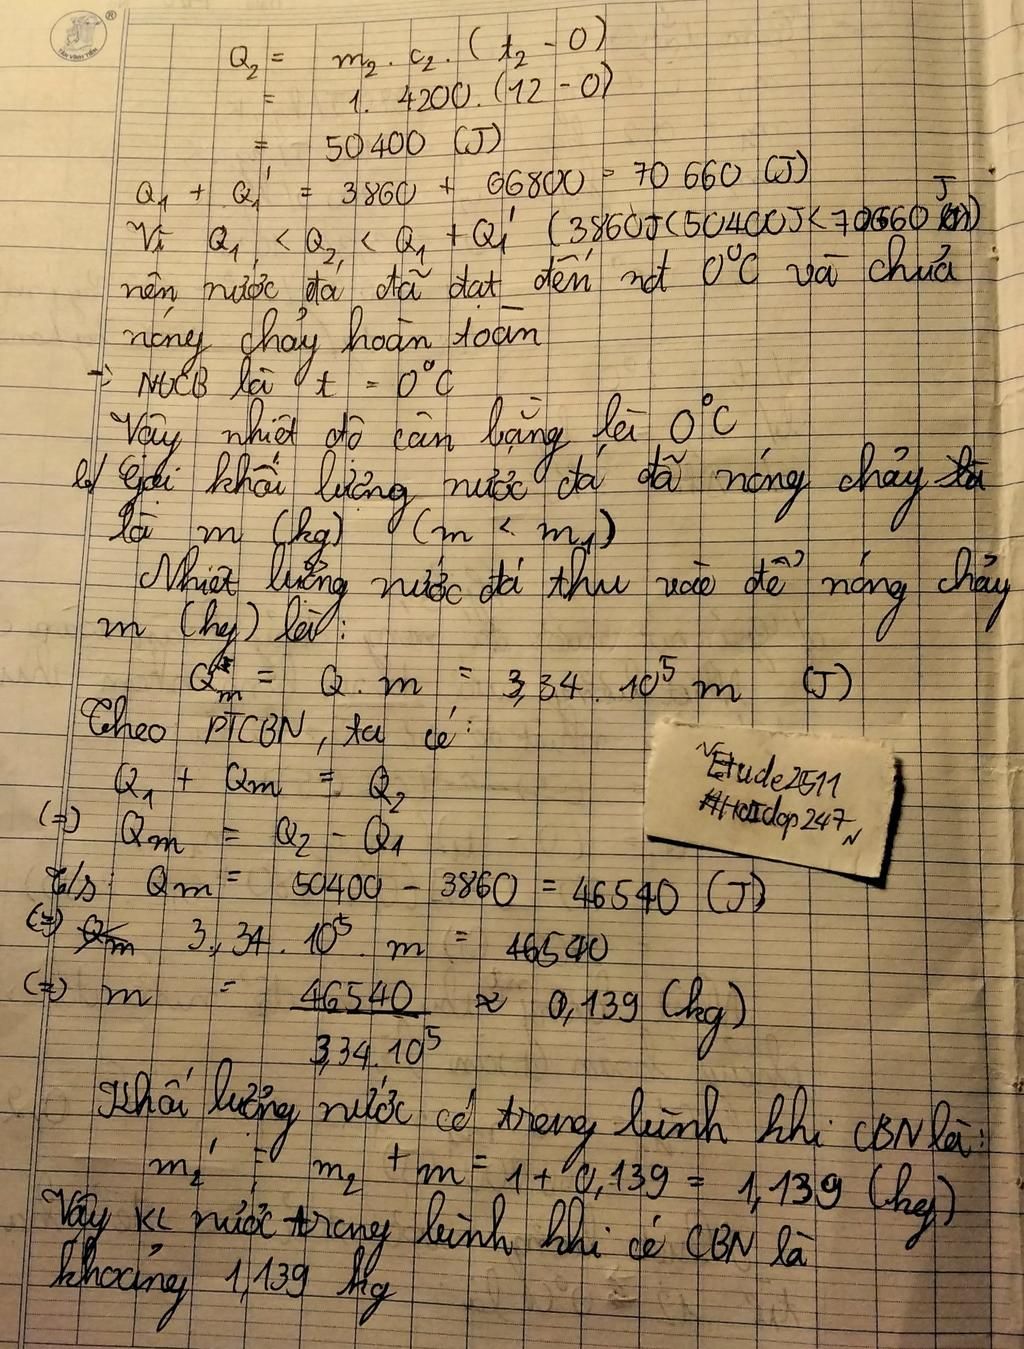 TÂN VĨNH TIẾN ®
Q₂ = m₂ . c₂ . (t₂ - 0)
= 1. 4200. (12 - 0)
= 50400 (J)
Q₁ + Q₁' = 3860 + 66800 = 70 660 (J)
Vì Q₁ < Q₂ < Q₁ + Q₁' (3860J<50400J<70660 J)
nên nước đá đã đạt đến nđ 0°C và chưa
nóng chảy hoàn toàn
→ NĐCB là t = 0°C
Vậy nhiệt độ cân bằng là 0°C
b/ Gọi khối lượng nước đá đã nóng chảy
là m (kg) (m < m₁)
Nhiệt lượng nước đá thu vào để nóng chảy
m (kg) là:
Qm = Q . m = 3,34 . 10⁵ m (J)
Theo PTCBN, ta có:
Q₁ + Qm = Q₂
(=) Qm = Q₂ - Q₁
T/s Qm = 50400 - 3860 = 46540 (J)
(=) 3,34. 10⁵ . m = 46540
(=) m = 46540 / 3,34.10⁵ ≈ 0,139 (kg)
~Etude2511
#Hoidap247~
Khối lượng nước có trong bình khi CBN là:
m₂' = m₂ + m = 1 + 0,139 = 1,139 (kg)
Vậy KL nước trong bình khi có CBN là
khoảng 1,139 kg